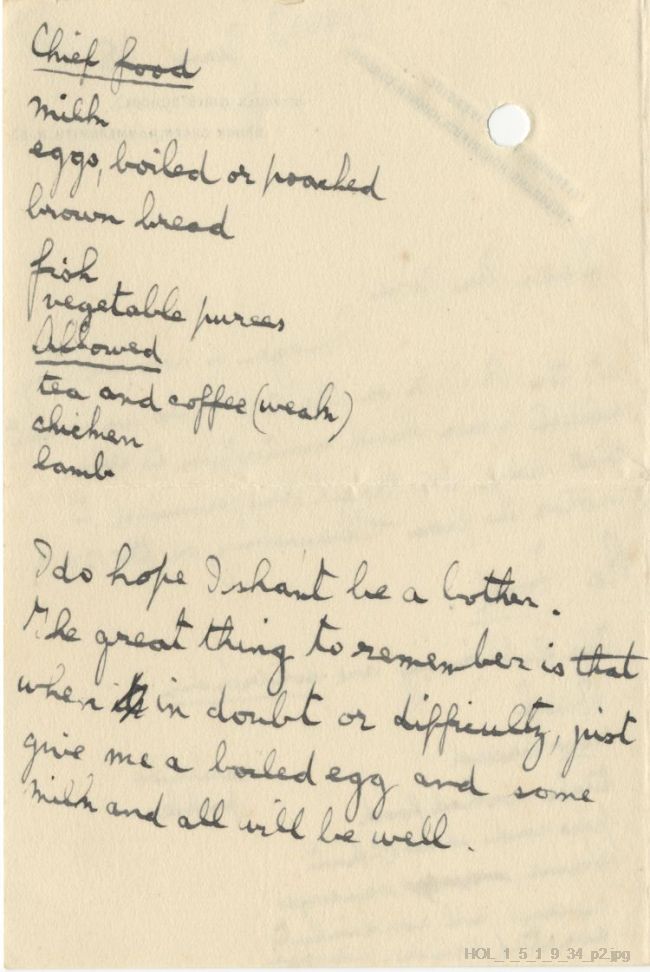 Chief food
milk
eggs, boiled or poached
brown bread
fish
vegetable purees
Allowed
tea and coffee (weak)
chicken
lamb
I do hope I shant be a bother.
The great thing to remember is that
when in doubt or difficulty, just
give me a boiled egg and some
milk and all will be well.
HOL_1_5_1_9_34_p2.jpg